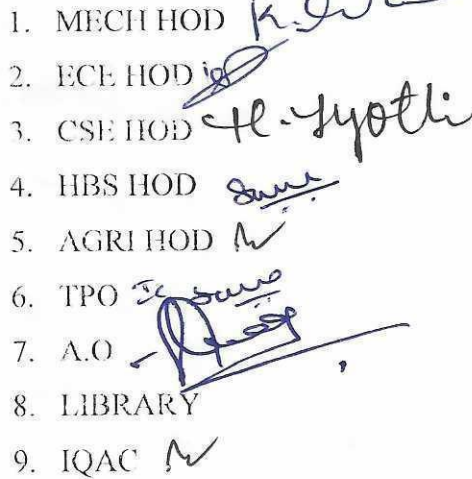 1. MECH HOD K.
2. ECE HOD
3. CSE HOD H. Jyothi
4. HBS HOD
5. AGRI HOD
6. TPO
7. A.O
8. LIBRARY
9. IQAC